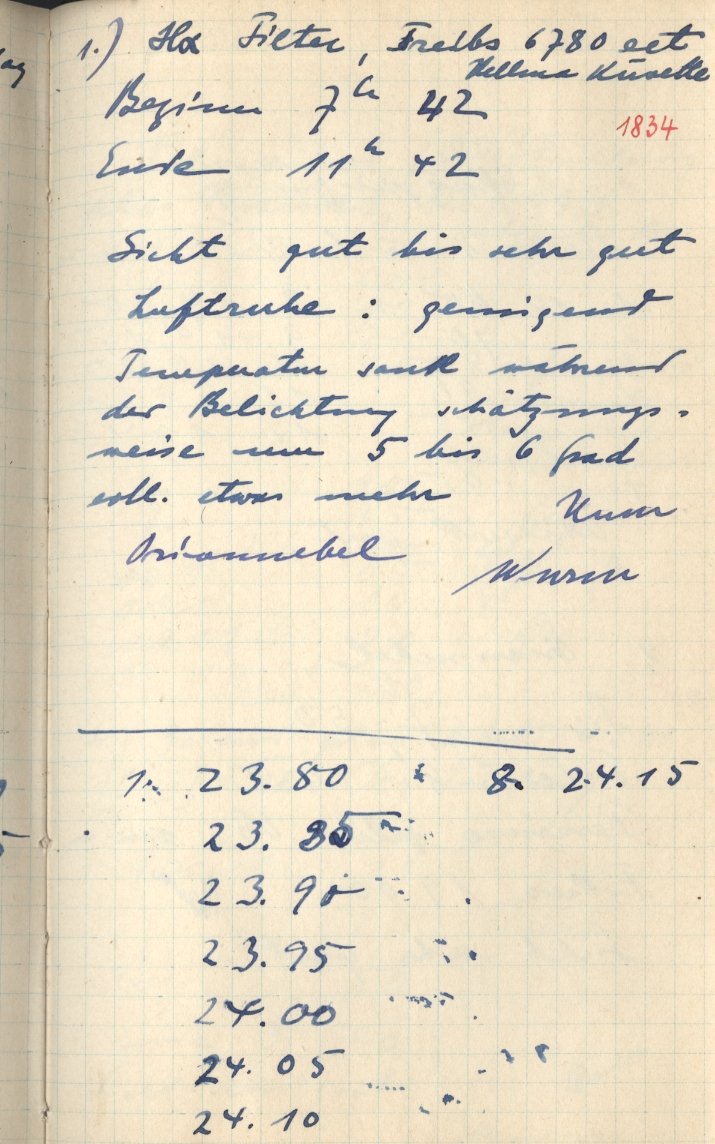 1.) Hα Filter, 6780 
Hellma Küvette
Beginn 7h 42
1834
Ende 11h 42
Sicht gut bis sehr gut
Luftruhe: genügend
Temperatur sank während
der Belichtung schätzungs-
weise um 5 bis 6 Grad
evll. etwas mehr
Orionnebel
Wurm
1. 23.80 8. 24.15
23.85
23.90
23.95
24.00
24.05
24.10